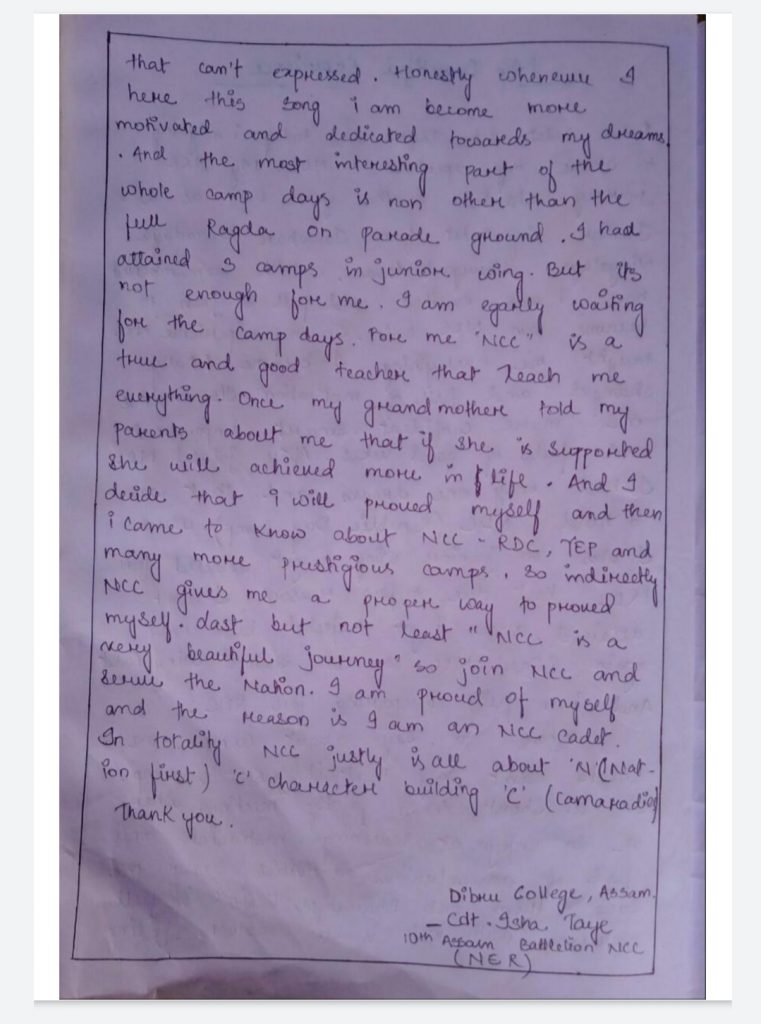 that can't expressed. Honestly whenever I
here this song i am become more
motivated and dedicated towards my dreams
. And the most interesting part of the
whole camp days is non other than the
full Ragda on parade ground. I had
attained 3 camps in junior wing. But its
not enough for me. I am egarly waiting
for the camp days. For me "NCC" is a
true and good teacher that teach me
everything. Once my grandmother told my
parents about me that if she is supported
she will achieved more in life. And I
decide that i will proved myself and then
i came to know about NCC - RDC, YEP and
many more prestigious camps. So indirectly
NCC gives me a proper way to proved
myself. Last but not least "NCC is a
very beautiful journey" so join NCC and
serve the Nation. I am proud of myself
and the reason is I am an NCC cadet.
In totality NCC justly is all about 'N' (Nat-
ion first) 'C' character building 'C' (Camaradie)
Thank you.
Dibru College, Assam.
- Cdt. Isha Taye
10th Assam Battelion NCC
(NER)